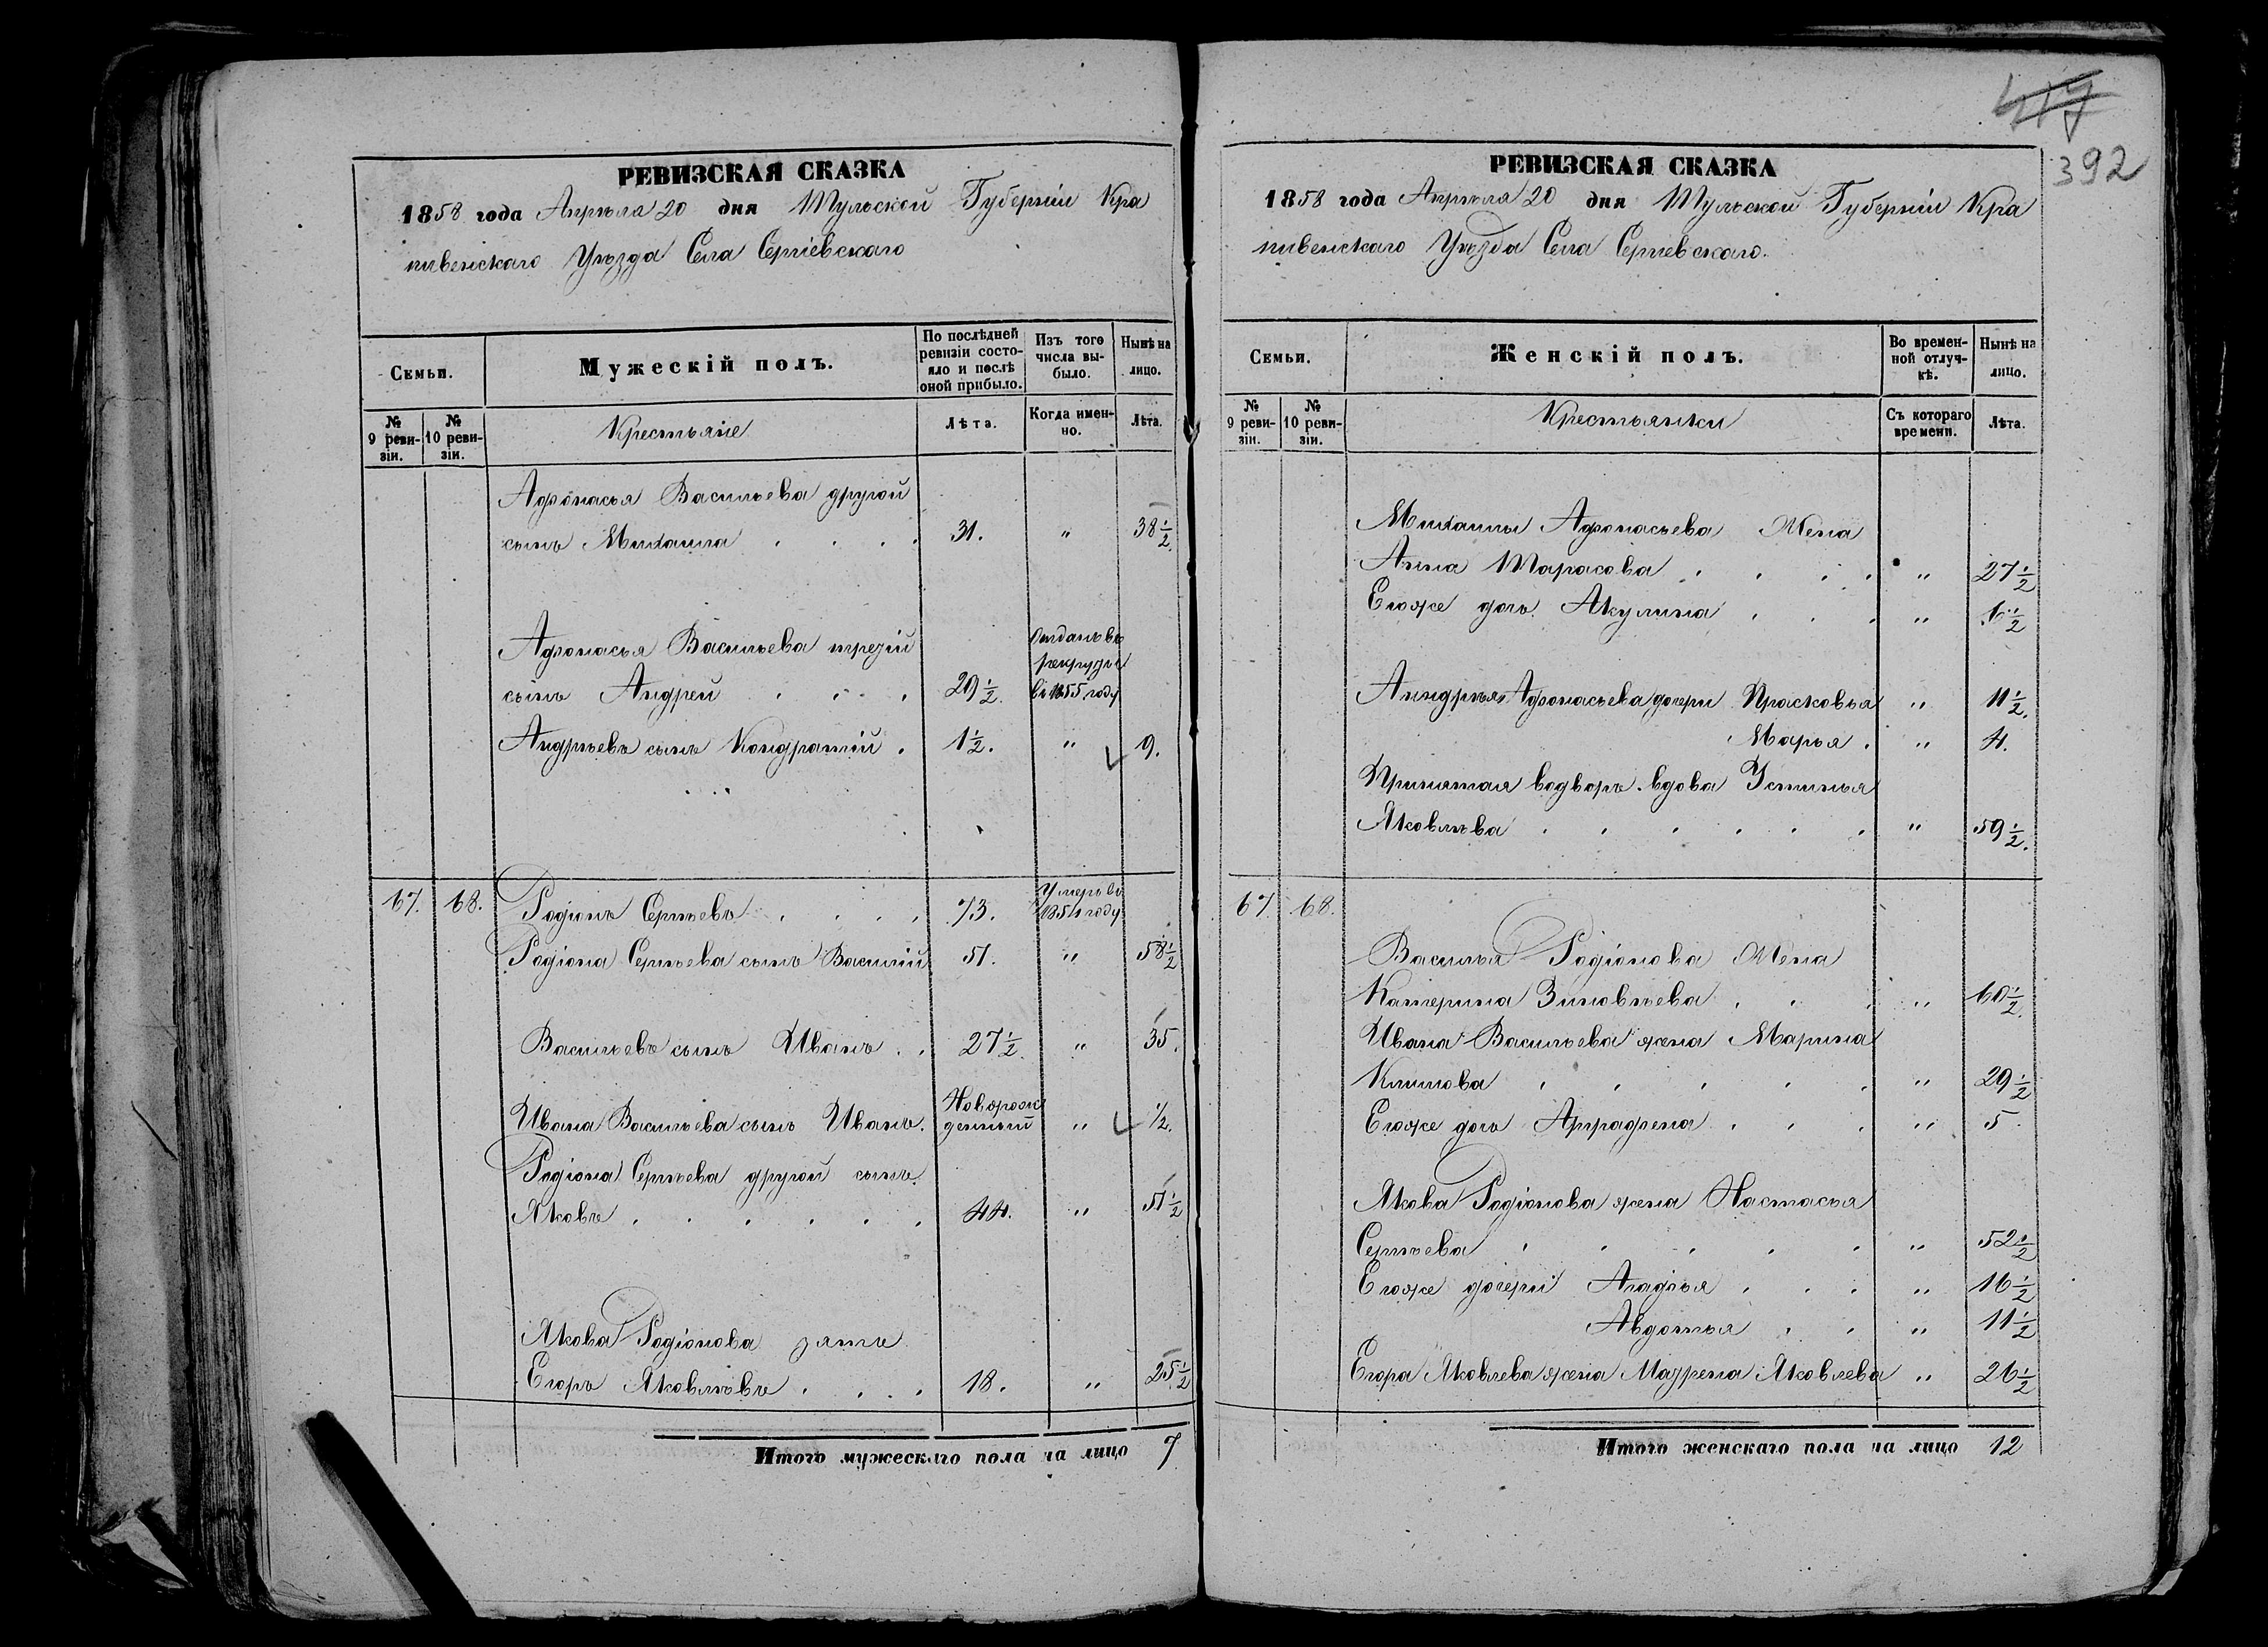 417
392
РЕВИЗСКАЯ СКАЗКА
1858 года Апрѣля 20 дня Тульской Губерніи Кра
пивенскаго Уѣзда Села Сергіевскаго
Семьи.
Мужескій полъ.
По послѣдней ревизіи состояло и послѣ оной прибыло.
Изъ того числа выбыло.
Нынѣ на лицо.
№ 9 ревизіи.
№ 10 ревизіи.
Крестьяне
Лѣта.
Когда именно.
Лѣта.
Афонасья Васильева другой
сынъ Михаила . . . . 31. " 38½.
Афонасья Васильева третій
сынъ Андрей . . . 29½. Отданъ въ рекруты въ 1855 году
Андрѣевъ сынъ Кондратій . 1½. " 9.
67. 68. Родіонъ Сергѣевъ . . . . 73. Умеръ въ 1854 году
Родіона Сергѣева сынъ Василій 51. " 58½
Васильевъ сынъ Иванъ . . 27½. " 35.
Ивана Васильева сынъ Иванъ. Новорожденный " ½.
Родіона Сергѣева другой сынъ
Яковъ . . . . . . 44. " 51½
Якова Родіонова зять
Егоръ Яковлѣвъ . . . . 18. " 25½
Итого мужескаго пола на лицо 7
РЕВИЗСКАЯ СКАЗКА
1858 года Апрѣля 20 дня Тульской Губерніи Кра
пивенскаго Уѣзда Села Сергіевскаго.
Семьи.
Женскій полъ.
Во временной отлучкѣ.
Нынѣ на лицо.
№ 9 ревизіи.
№ 10 ревизіи.
Крестьянки
Съ котораго времени.
Лѣта.
Михаилы Афонасьева Жена
Анна Тарасова . . . . " 27½
Егоже дочь Акулина . . . " 6½
Андрѣя Афонасьева дочери Прасковья " 11½.
Марья . " 4.
Принятая водворъ вдова Устинья
Яковлѣва . . . . . . " 59½.
67. 68.
Василья Родіонова Жена
Катерина Зиновѣева . . . " 60½.
Ивана Васильева жена Марина
Климова . . . . . " 29½
Егоже дочь Аграфена . . . " 5.
Якова Родіонова жена Настасья
Сергѣева . . . . . " 52½
Егоже дочери Агафья . . . " 16½
Авдотья . . " 11½
Егора Яковлева жена Матрена Яковлева " 26½
Итого женскаго пола на лицо 12